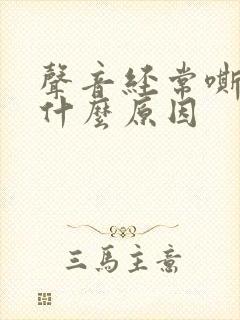 聲音經常嘶
什麼原因
三馬主意